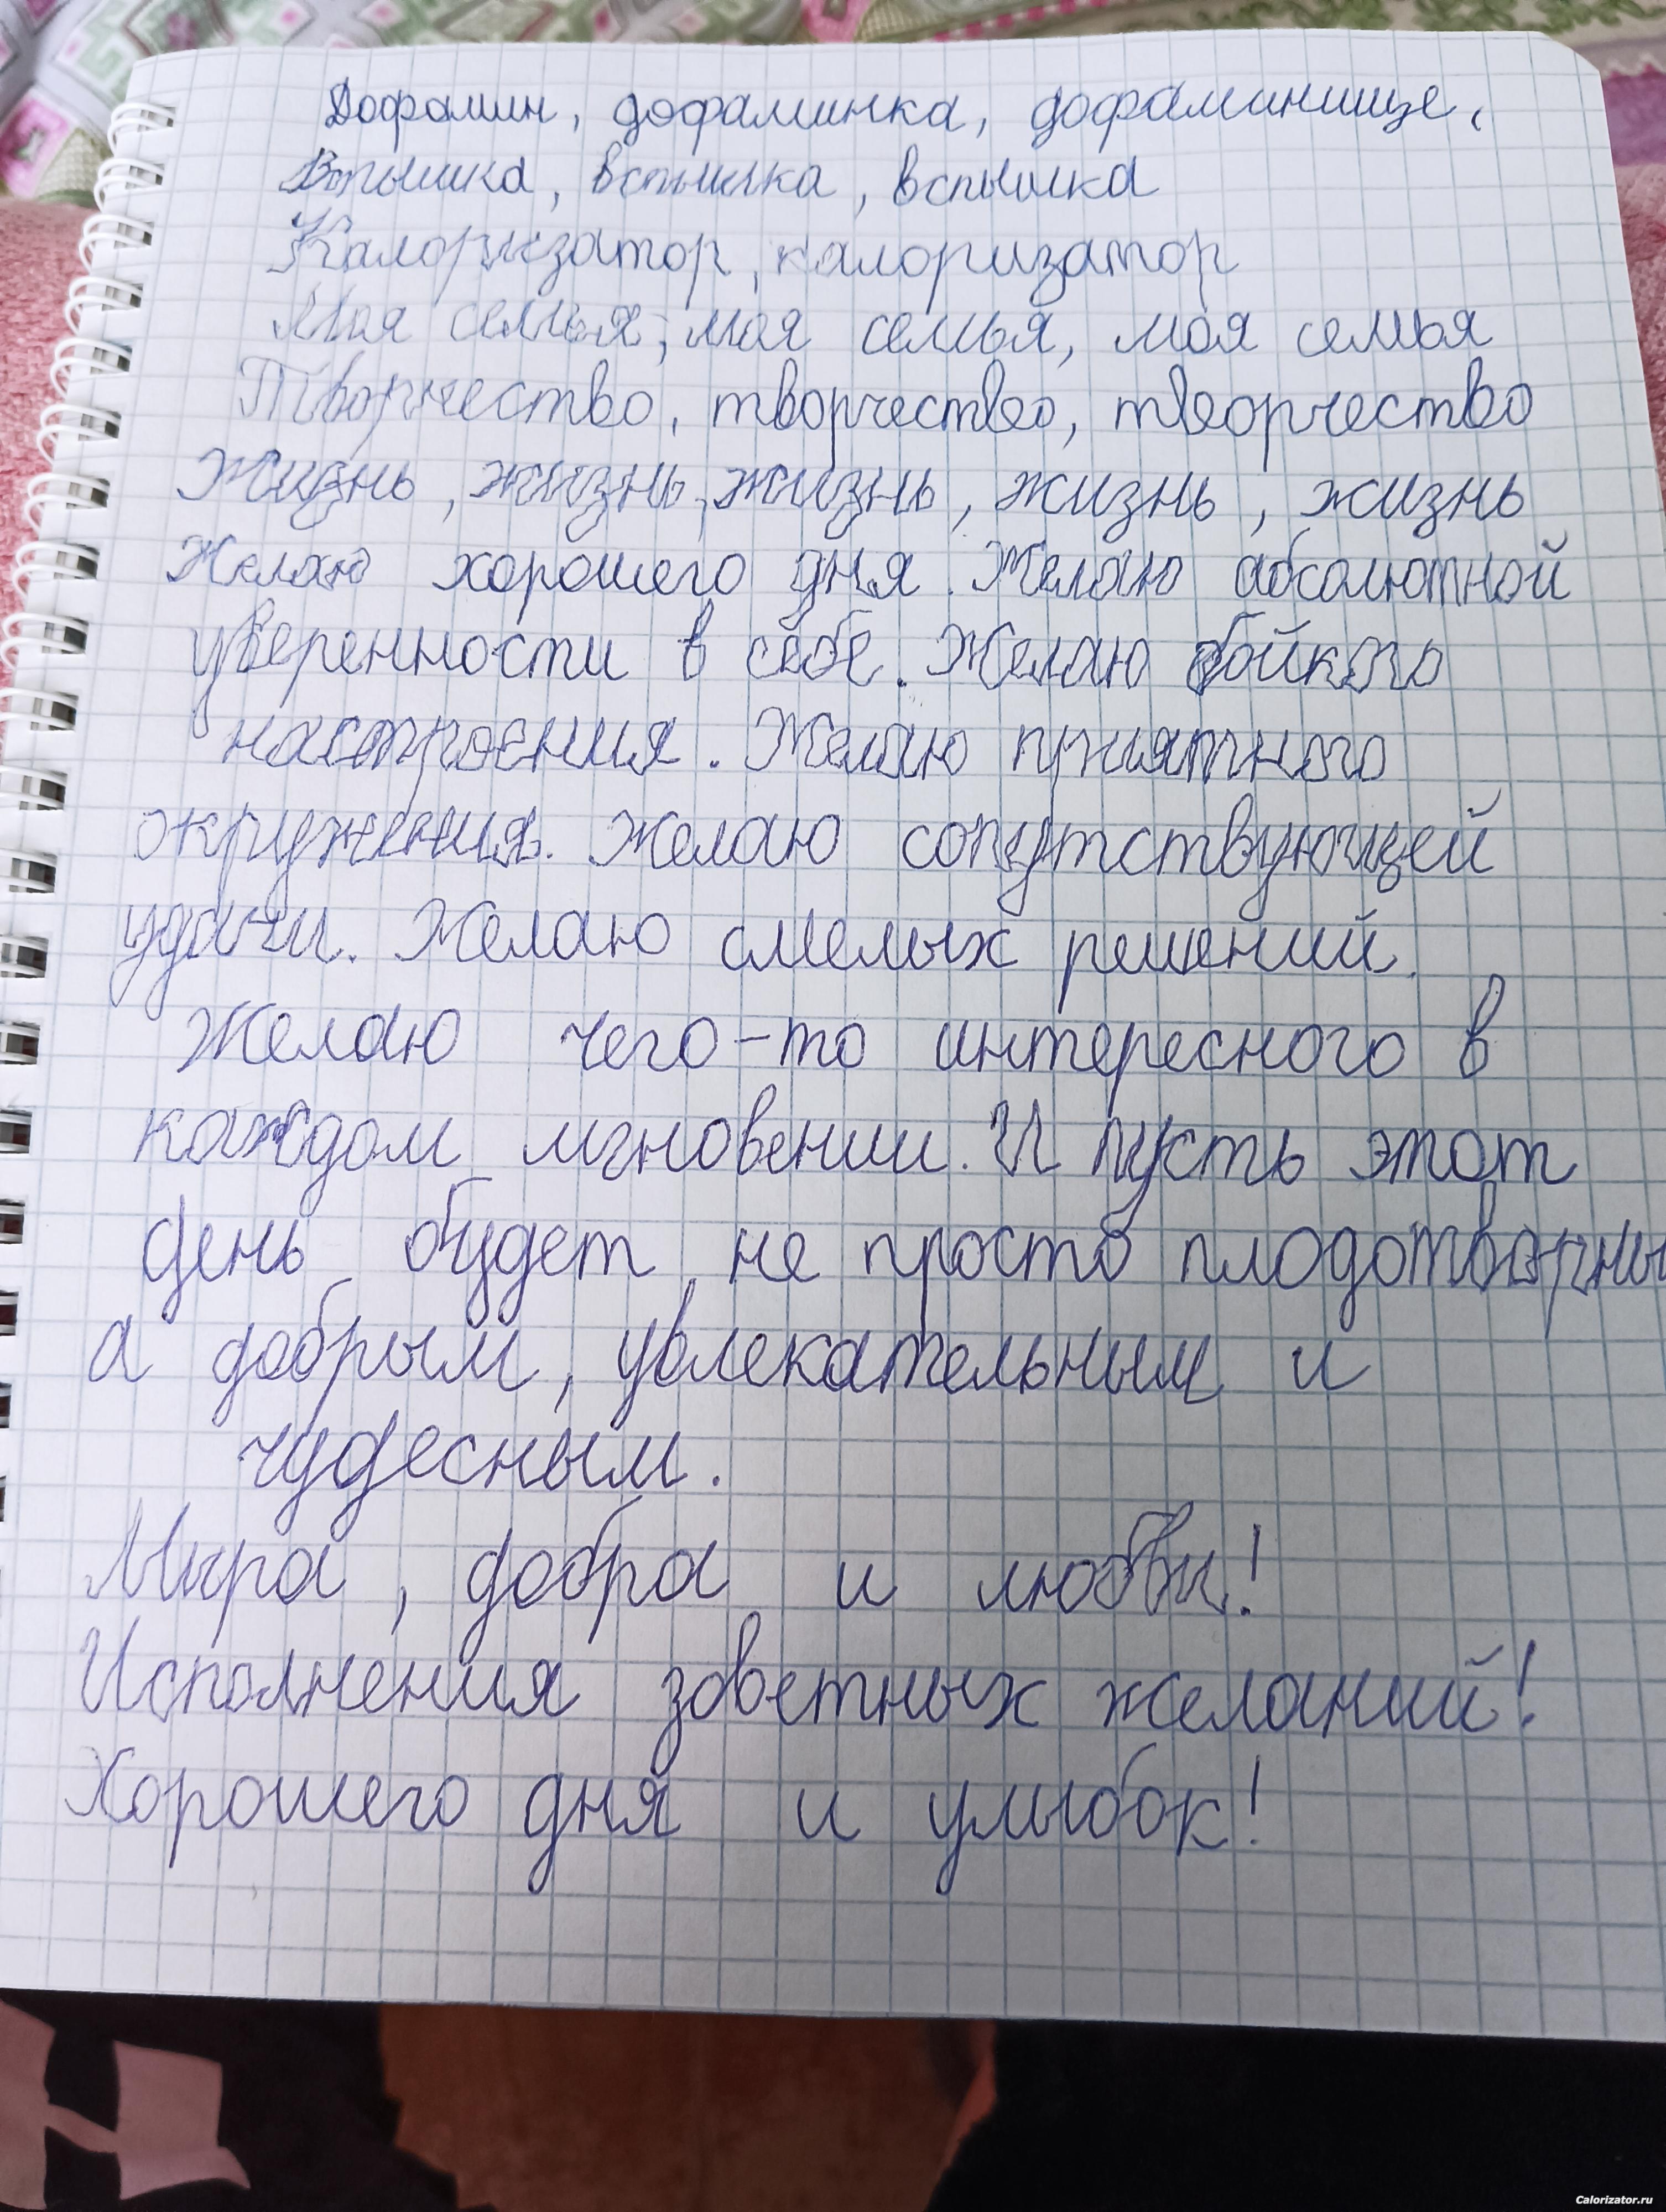 Дофамин, дофаминка, дофаминище,
Вспышка, вспышка, вспышка
Калоризатор, калоризатор
Моя семья, моя семья, моя семья
Творчество, творчество, творчество
Жизнь, жизнь, жизнь, жизнь, жизнь
Желаю хорошего дня. Желаю абсолютной
уверенности в себе. Желаю бойкого
настроения. Желаю приятного
окружения. Желаю сопутствующей
удачи. Желаю смелых решений.
Желаю чего-то интересного в
каждом мгновении. И пусть этот
день будет не просто плодотворны
а добрым, увлекательным и
чудесным.
Мира, добра и любви!
Исполнения заветных желаний!
Хорошего дня и улыбок!
Calorizator.ru